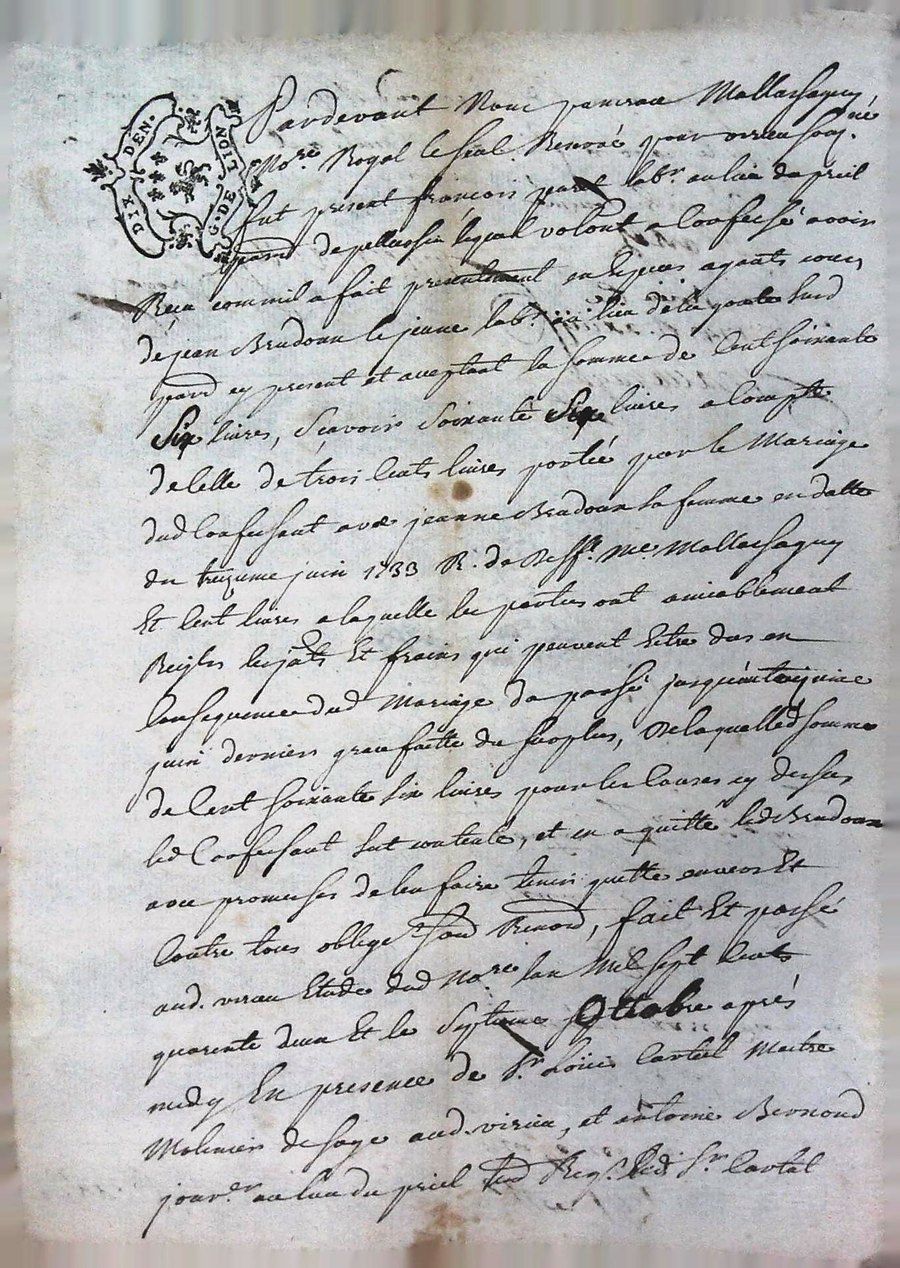 DIX DEN.
G. DE NOIT
Pardevant Nous Mallassagny
No.re Royal Reservé pour virieu soug.né
fut present françois lab.r au lieu du priel
par.d de pelussin lequel volont. a Confessé avoir
Receu comm'il a fait presentement en especes ayants cours
de jean Beudoux le jeune lab.r au lieu de la
par.d cy present et aceptant la somme de Cent soixante
Six livres, Scavoir Soixante Six livres a Compte
de Celle de trois Cents livres portée par le Mariage
dud Confessant avec jeanne Beudoux sa femme en datte
du treizieme juin 1733 R. de Me Mallassagny
Et Cent livres a laquelle les parties ont amiablement
Reigles les jnts Et frains qui peuvent Estre dus en
Consequence dud Mariage du passé jusqu'en
juin dernier grace faitte du surplus, De laquelle d somme
de Cent soixante Six livres pour les Causes cy dessus
led Confessant Sest contenté, et en a quitté led Beudoux
avec promesses de len faire tenir quitte envers Et
Contre tous oblige Renond, fait Et passé
aud. virieu Etude dud No.re lan Mil sept Cents
quarente deux Et le Septieme Ottobre aprés
midy En presence de S.r Loüis Cartal Maitre
Molinier de soye aud. virieu, et antoine Bernond
jour.er au lieu du priel Req.s led S.r Cartal